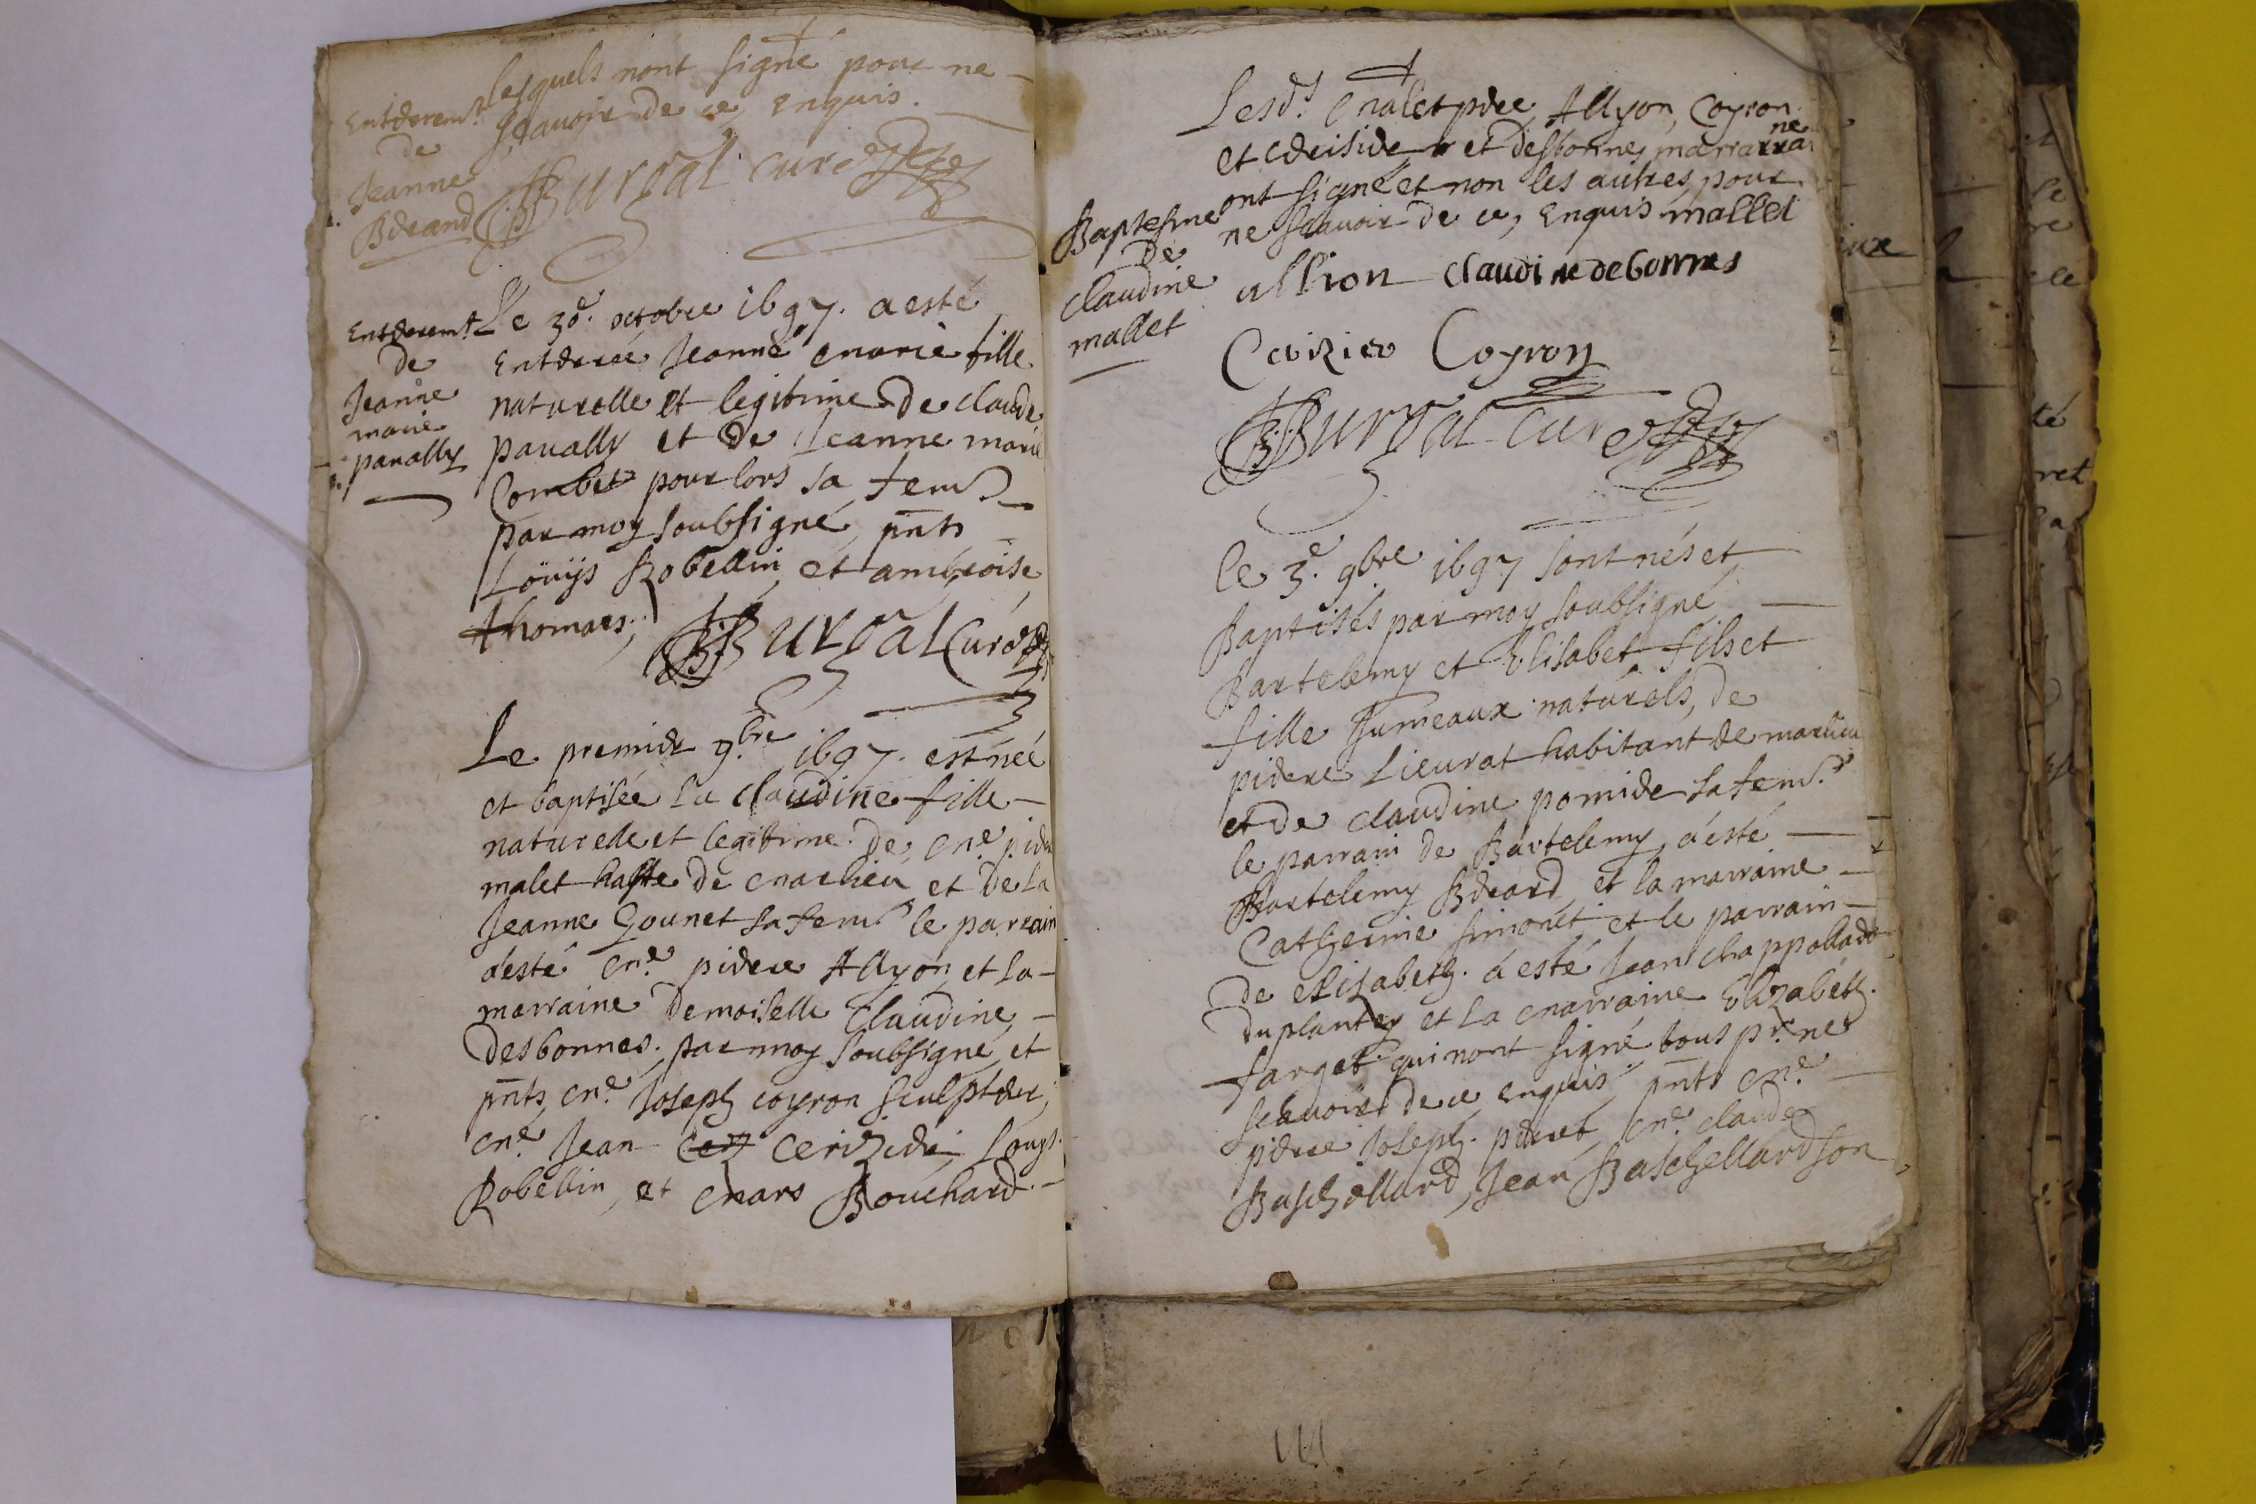 lesquels n'ont signé pour ne
scavoir de ce, enquis.
Enterremt
de
Jeanne
Berand
Burgat curé
Enterremt
de
Jeanne
marie
pavally
Le 30e octobre 1697. a esté
Enterrée Jeanne marie fille
naturelle et legitime de claude
pavally et de Jeanne marie
Combet pour lors sa fem.
par moy soubsigné, pnts
Loüys Robellin, et ambroise
thomas;
Burgat Curé
Le premier 9bre 1697. est née
et baptisée la claudine fille
naturele et legitime de, me pierre
malet de marlieu et de la
Jeanne Gounet sa fem. le parrain
a esté me pierre Allyon, et la
marraine Demoiselle Claudine,
Desbonnes. par moy soubsigné, et
pnts, me Joseph coyron sculpteur,
me Jean Cerizier, Louys
Robellin, et mars Bouchard.
Lesds malet pere, Allyon, Coyron
et Cerisier et desbonnes marraine
ont signé et non les autres pour
ne scavoir de ce, Enquis mallet
Baptesme
de
claudine
mallet
allion claudine debonnes
Cerizier Coyron
Burgat curé
le 3e 9bre 1697 sont nés et
Baptisés par moy soubsigné
Bartelemy et Elisabet fils et
fille Jumeaux naturels, de
pierre Lieurat habitant de marlieu
et de claudine pomier sa fem.
le parrain de Bartelemy, a esté
Bartelemy Berard et la marraine
Catherine simonet et le parrain
de elisabeth. a esté Jean
duplantey et la marraine Elizabeth.
farget qui n'ont signé tous pr ne
scavoir de ce enquis. pnts me
pierre Joseph. perret, me claude
Baschellard, Jean Baschellard son